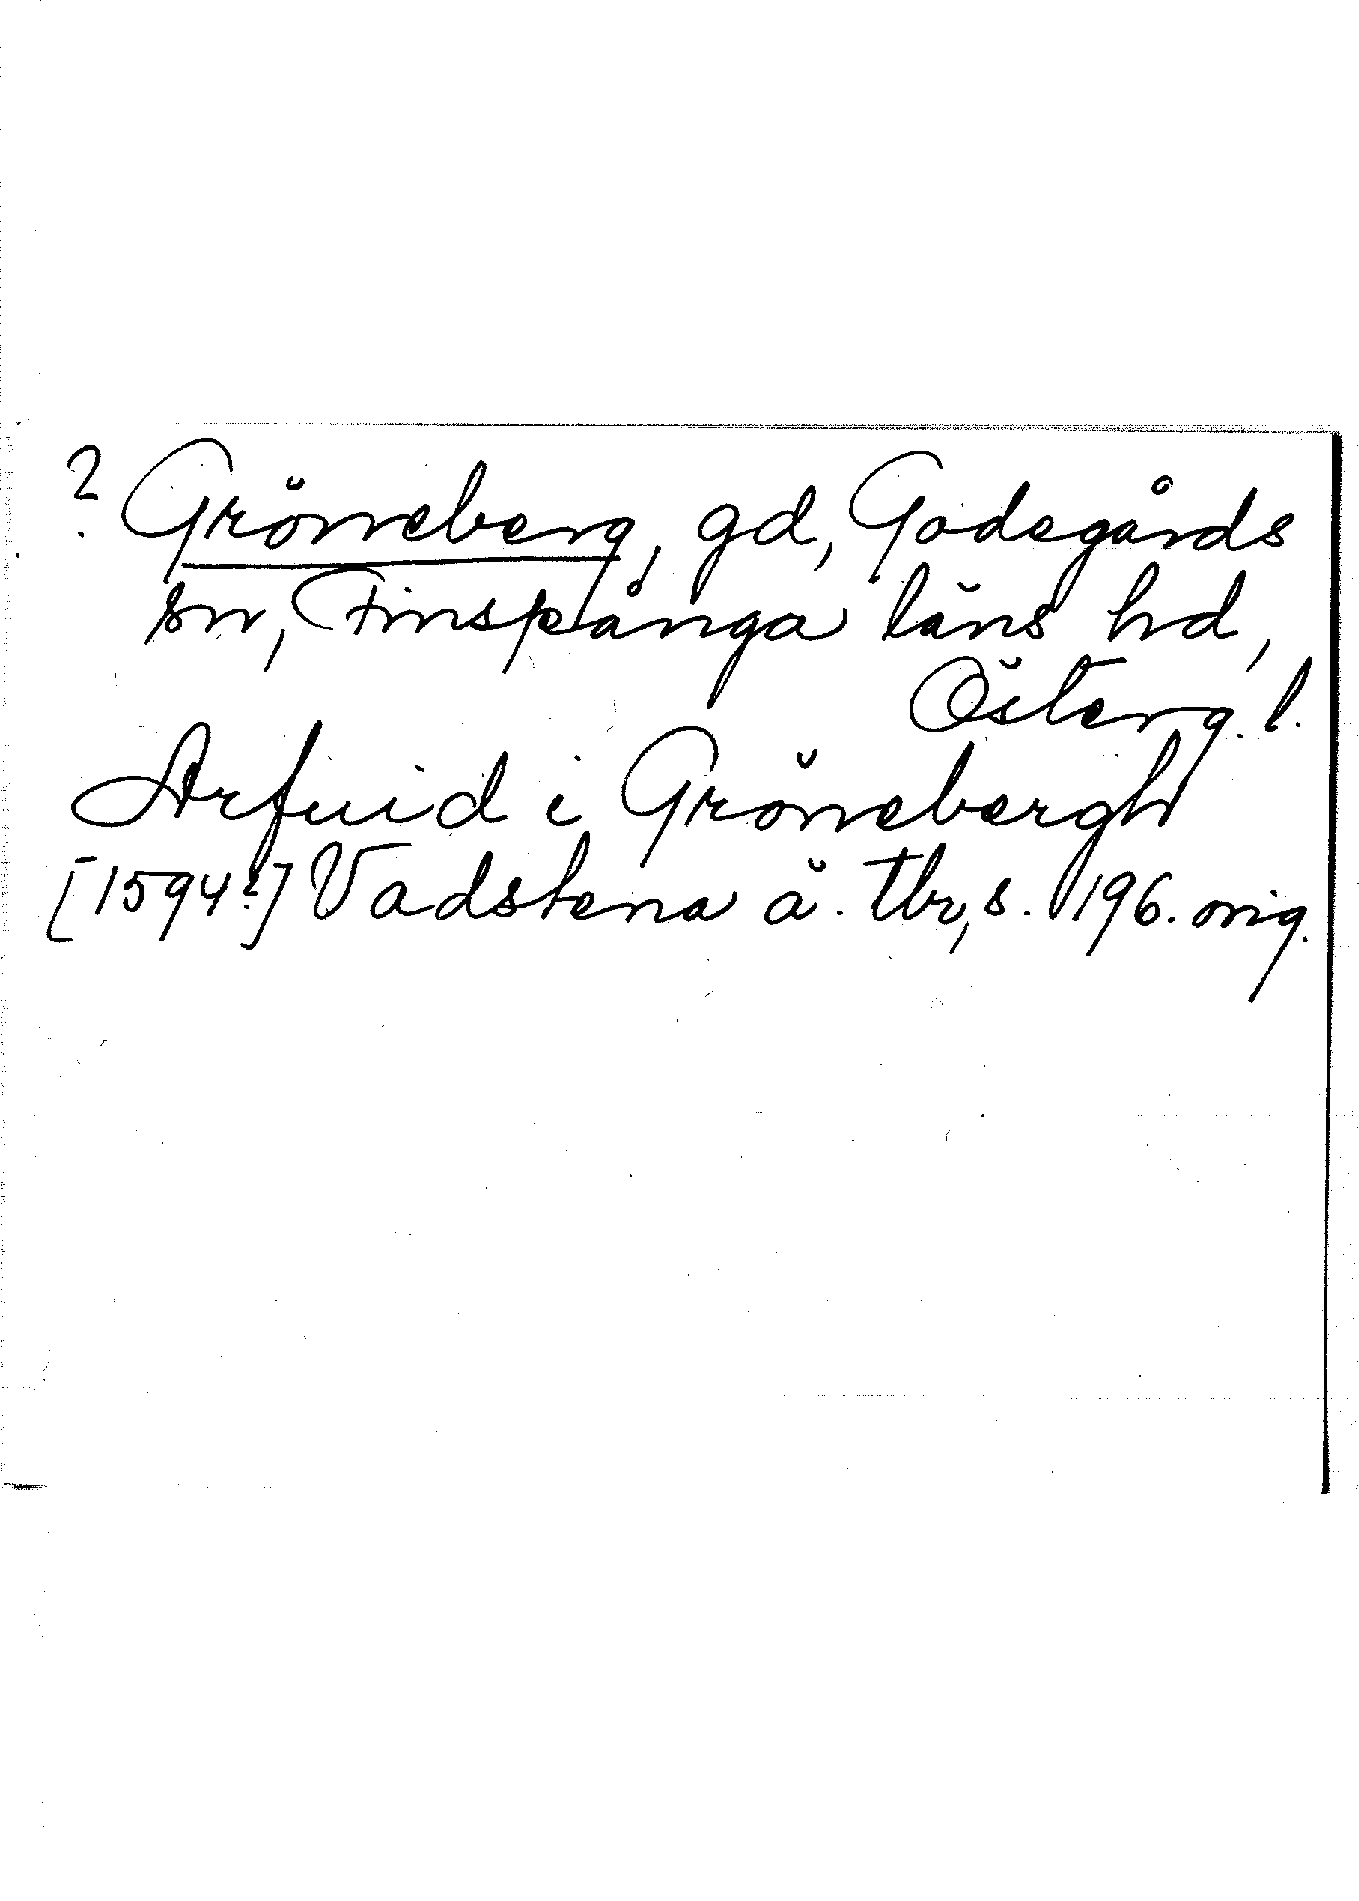 ? Gröneberg, gd, Godegårds
sn, Finspånga läns hd,
Österg. l.
Arfuid i Grönebergh
[1594?] Vadstena ä. tbr, s. 196. orig.